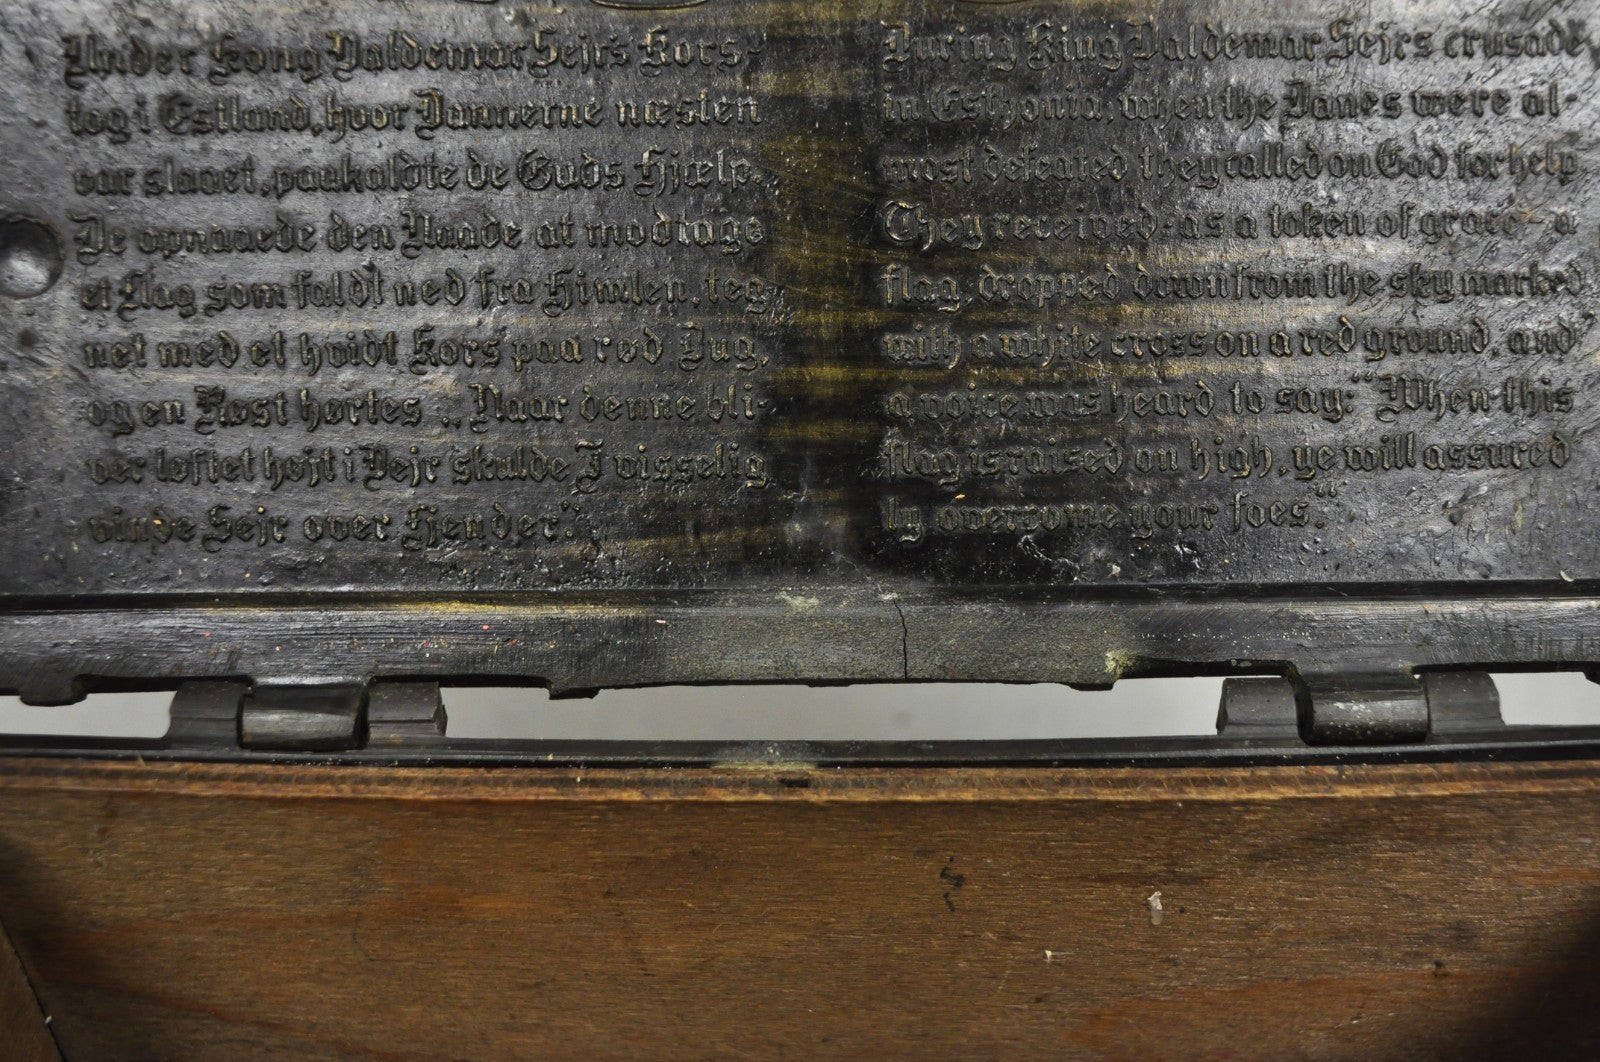 Under Kong Valdemar Sejrs Kors-
tog i Estland, hvor Dannerne næsten
var slaaet, paakaldte de Guds Hjælp.
De opnaaede den Naade at modtage
et Flag som faldt ned fra Himlen, teg-
net med et hvidt Kors paa rød Dug,
og en Røst hørtes „Naar denne bli-
ver løftet højt i Vejr skulde I visselig
vinde Sejr over Fjender."
During King Valdemar Sejrs crusade
in Esthonia, when the Danes were al-
most defeated they called on God for help
They received - as a token of grace - a
flag, dropped down from the sky marked
with a white cross on a red ground, and
a voice was heard to say: "When this
flag is raised on high, ye will assured
ly overcome your foes."